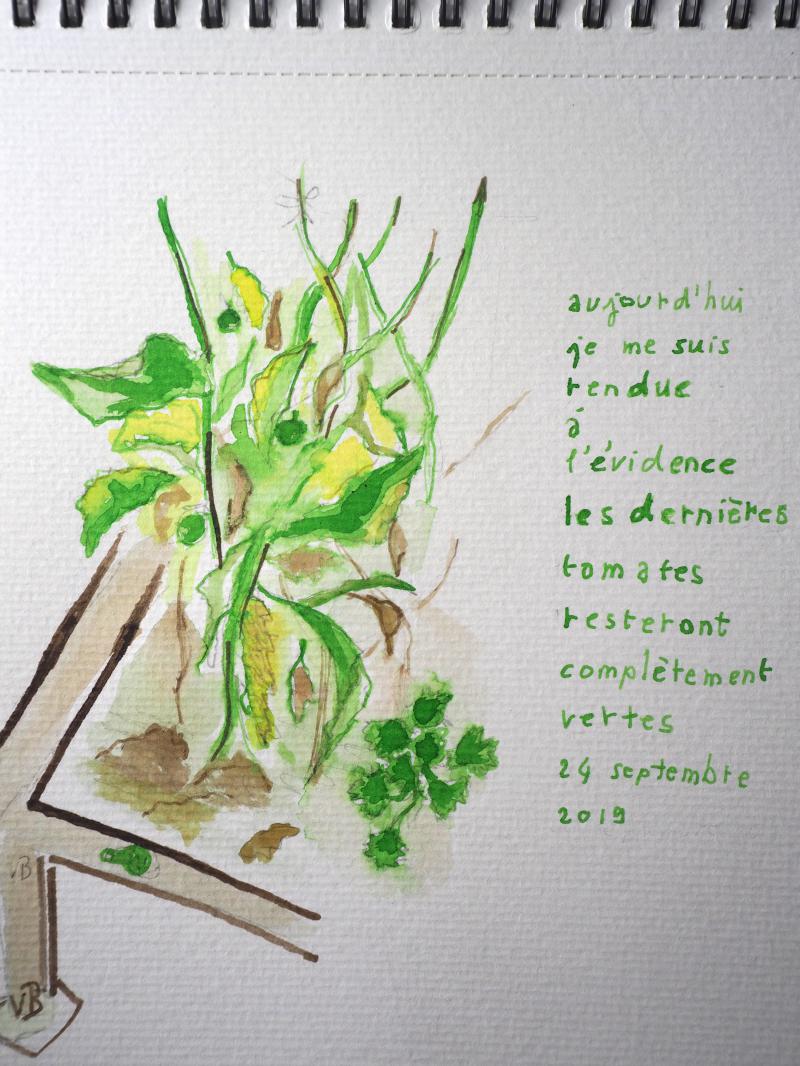 aujourd'hui
je me suis
rendue
à
l'évidence
les dernières
tomates
resteront
complètement
vertes
24 septembre
2019
VB
VB